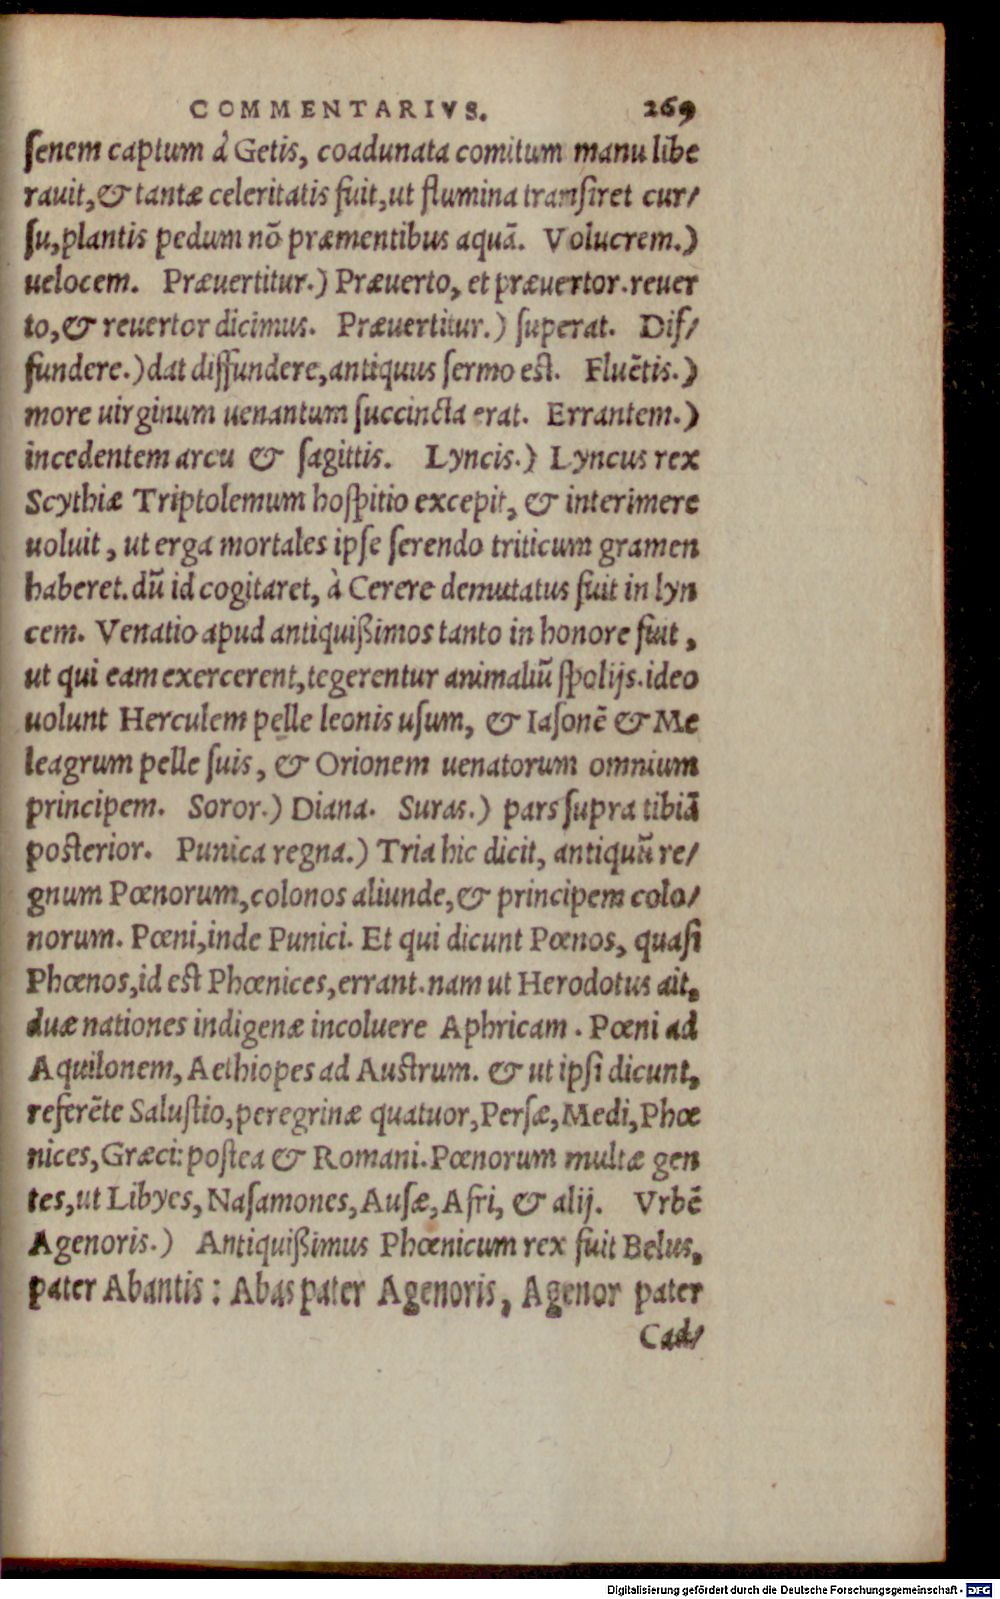 COMMENTARIVS. 269
senem captum à Getis, coadunata comitum manu libe
rauit, & tantæ celeritatis fuit, ut flumina transiret cur/
su, plantis pedum nō præmentibus aquā. Volucrem.)
uelocem. Præuertitur.) Præuerto, et præuertor. reuer
to, & reuertor dicimus. Præuertitur.) superat. Dif/
fundere.) dat diffundere, antiquus sermo est. Fluētis.)
more uirginum uenantum succincta erat. Errantem.)
incedentem arcu & sagittis. Lyncis.) Lyncus rex
Scythiæ Triptolemum hospitio excepit, & interimere
uoluit, ut erga mortales ipse serendo triticum gramen
haberet. dū id cogitaret, à Cerere demutatus fuit in lyn
cem. Venatio apud antiquißimos tanto in honore fuit,
ut qui eam exercerent, tegerentur animaliū spolijs. ideo
uolunt Herculem pelle leonis usum, & Iasonē & Me
leagrum pelle suis, & Orionem uenatorum omnium
principem. Soror.) Diana. Suras.) pars supra tibiā
posterior. Punica regna.) Tria hic dicit, antiquū re/
gnum Pœnorum, colonos aliunde, & principem colo/
norum. Pœni, inde Punici. Et qui dicunt Pœnos, quasi
Phœnos, id est Phœnices, errant. nam ut Herodotus ait,
duæ nationes indigenæ incoluere Aphricam. Pœni ad
Aquilonem, Aethiopes ad Austrum. & ut ipsi dicunt,
referēte Salustio, peregrinæ quatuor, Persæ, Medi, Phœ
nices, Græci: postea & Romani. Pœnorum multæ gen
tes, ut Libyes, Nasamones, Ausæ, Afri, & alij. Vrbē
Agenoris.) Antiquißimus Phœnicum rex fuit Belus,
pater Abantis: Abas pater Agenoris, Agenor pater
Cad/
Digitalisierung gefördert durch die Deutsche Forschungsgemeinschaft - DFG